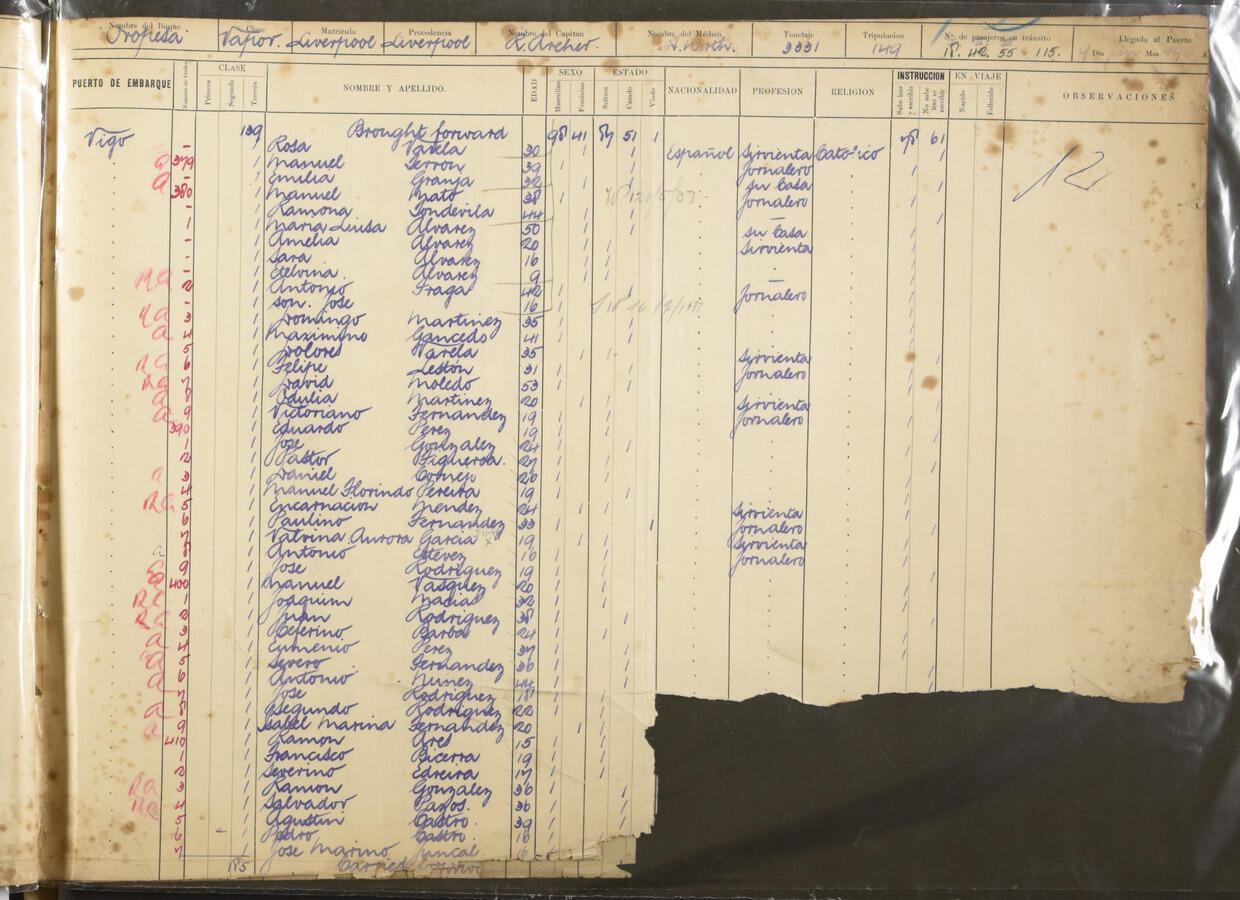 Nombre del Buque Clase Matricula Procedencia Nombre del Capitan Nombre del Médico Tonelaje Tripulación Nº de pasajeros en tránsito Llegada al Puerto
Oropesa Vapor. Liverpool Liverpool R. Archer. North. 3331 149 18. 42. 55 115. Día Mes
PUERTO DE EMBARQUE Número de Orden CLASE Primera Segunda Tercera NOMBRE Y APELLIDO. EDAD SEXO Masculino Femenino ESTADO Soltero Casado Viudo NACIONALIDAD PROFESION RELIGION INSTRUCCION Sabe leer y escribir No sabe leer ni escribir EN VIAJE Nacido Fallecido OBSERVACIONES
Vigo 139 Brought forward 98 41 87 51 1 78 61
- 1 Rosa Varela 30 Español Sirvienta Católico
379 1 Manuel Terron 39 Jornalero 12
- 1 Emilia Granja 32 su Casa
380 1 Manuel Mato 38 Jornalero
- 1 Ramona Fondevila 44 -
1 1 Maria Luisa Alvarez 50 su Casa
- 1 Amelia Alvarez 20 Sirvienta
- 1 Sara Alvarez 16
- 1 Etelvina Alvarez 9 -
2 1 Antonio Fraga 42 Jornalero
- 1 son. Jose 16
3 1 Domingo Martinez 35
4 1 Maximino Gancedo 41
5 1 Dolores Varela 35 Sirvienta
6 1 Felipe Lestón 31 Jornalero
7 1 David Moledo 53
8 1 Odulia Martinez 20 Sirvienta
9 1 Victoriano Fernandez 19 Jornalero
390 1 Eduardo Perez 19
1 1 Jose Gonzalez 24
2 1 Pastor Figueroa. 27
3 1 Daniel Cornejo 20
4 1 Manuel Florindo Pereira 19
5 1 Encarnacion Mendez 24 Sirvienta
6 1 Paulino Fernandez 33 Jornalero
7 1 Valvina Aurora Garcia 19 Sirvienta
8 1 Antonio Estevez 16 Jornalero
9 1 Jose Rodriguez 19
400 1 Manuel Vasquez 20
1 1 Joaquim Macias 32
2 1 Juan Rodriguez 38
3 1 Ceferino Barba 24
4 1 Eumenio Perez 37
5 1 Severo Fernandez 36
6 1 Antonio Nunez 44
7 1 Jose Rodriguez 18
8 1 Segundo Rodriguez 22
9 1 Isabel Marina Fernandez 20
410 1 Ramon Ares 15
1 1 Francisco Bicerra 19
2 1 Severino Edreira 17
3 1 Ramon Gonzalez 36
4 1 Salvador Pazos. 36
5 1 Agustin Castro. 39
6 1 Pedro Castro. 16
7 1 Jose Marino Juncal 16
185 Carried